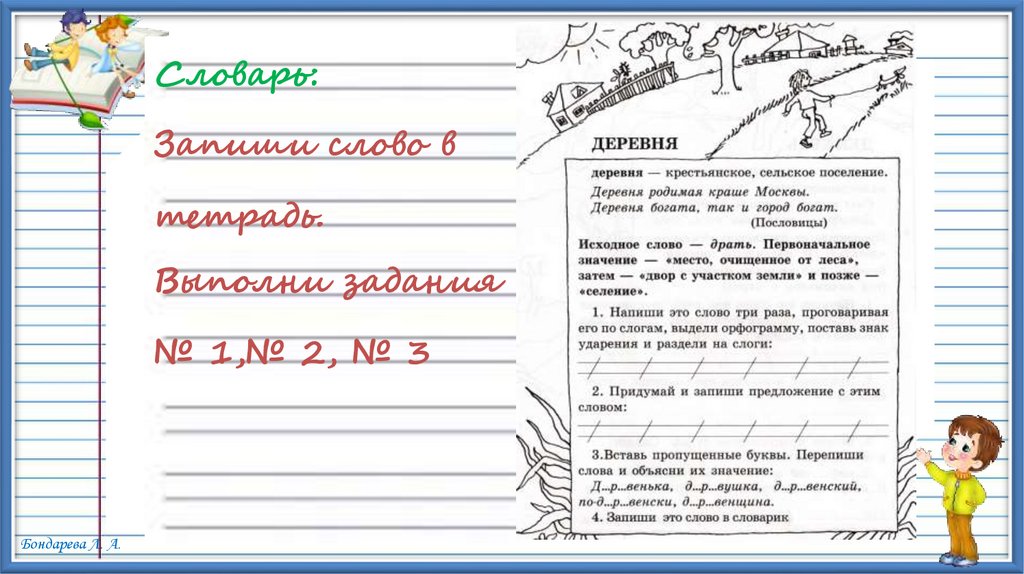 Словарь:
Запиши слово в
тетрадь.
Выполни задания
№ 1,№ 2, № 3
ДЕРЕВНЯ
деревня — крестьянское, сельское поселение.
Деревня родимая краше Москвы.
Деревня богата, так и город богат.
(Пословицы)
Исходное слово — драть. Первоначальное
значение — «место, очищенное от леса»,
затем — «двор с участком земли» и позже —
«селение».
1. Напиши это слово три раза, проговаривая
его по слогам, выдели орфограмму, поставь знак
ударения и раздели на слоги:
2. Придумай и запиши предложение с этим
словом:
3.Вставь пропущенные буквы. Перепиши
слова и объясни их значение:
Д...р...венька, д...р...вушка, д...р...венский,
по-д...р...венски, д...р...венщина.
4. Запиши это слово в словарик
Бондарева Л. А.